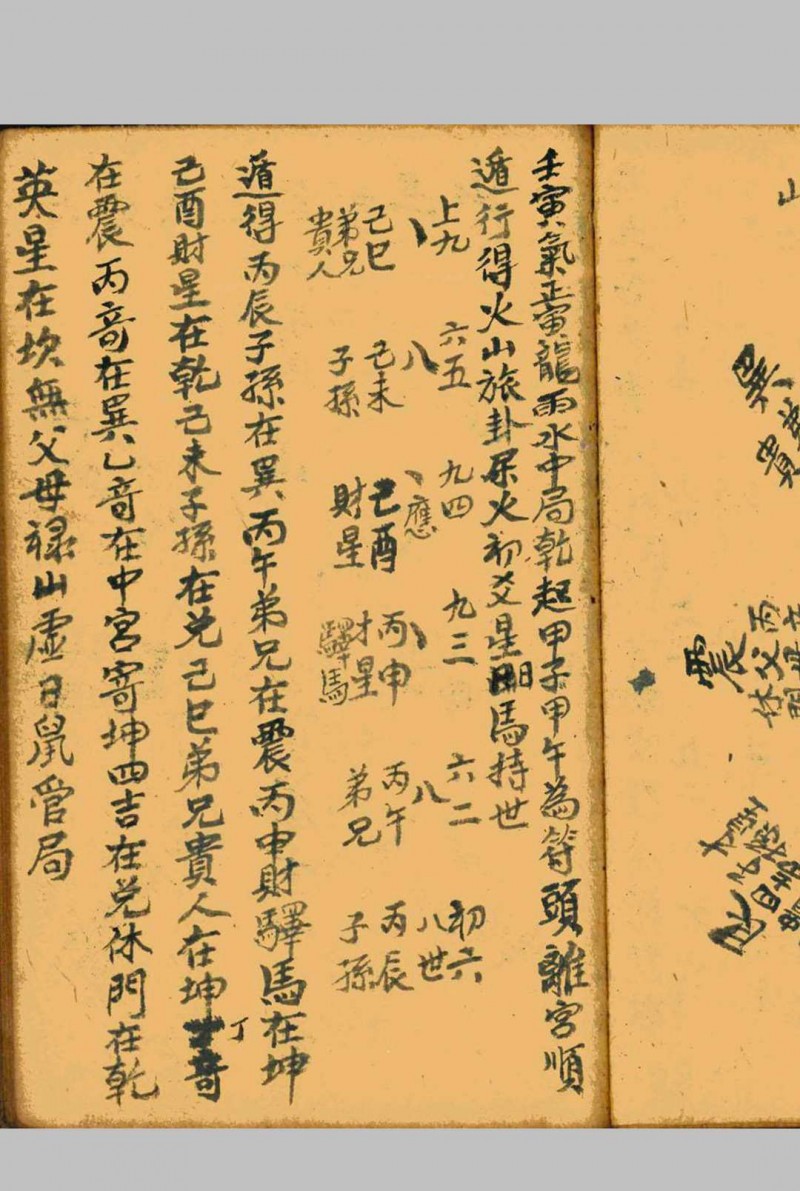 壬寅氣正震龍雨水中局乾起甲子甲午為符頭離宮順
遁行得火山旅卦屬火初爻星日馬持世
上九 、 己巳 弟兄 貴人
六五 八 己未 子孫
九四 、應 己酉 財星
九三 、 丙申 才星 驛馬
六二 八 丙午 弟兄
初六 八世 丙辰 子孫
遁得丙辰子孫在巽丙午弟兄在震丙申財驛馬在坤
己酉財星在乾己未子孫在兌己巳弟兄貴人在坤丁奇
在震丙竒在巽乙竒在中宮寄坤四吉在兌休門在乾
英星在坎無父母祿山虛日鼠管局
山
巽
貴
震
丙父
休